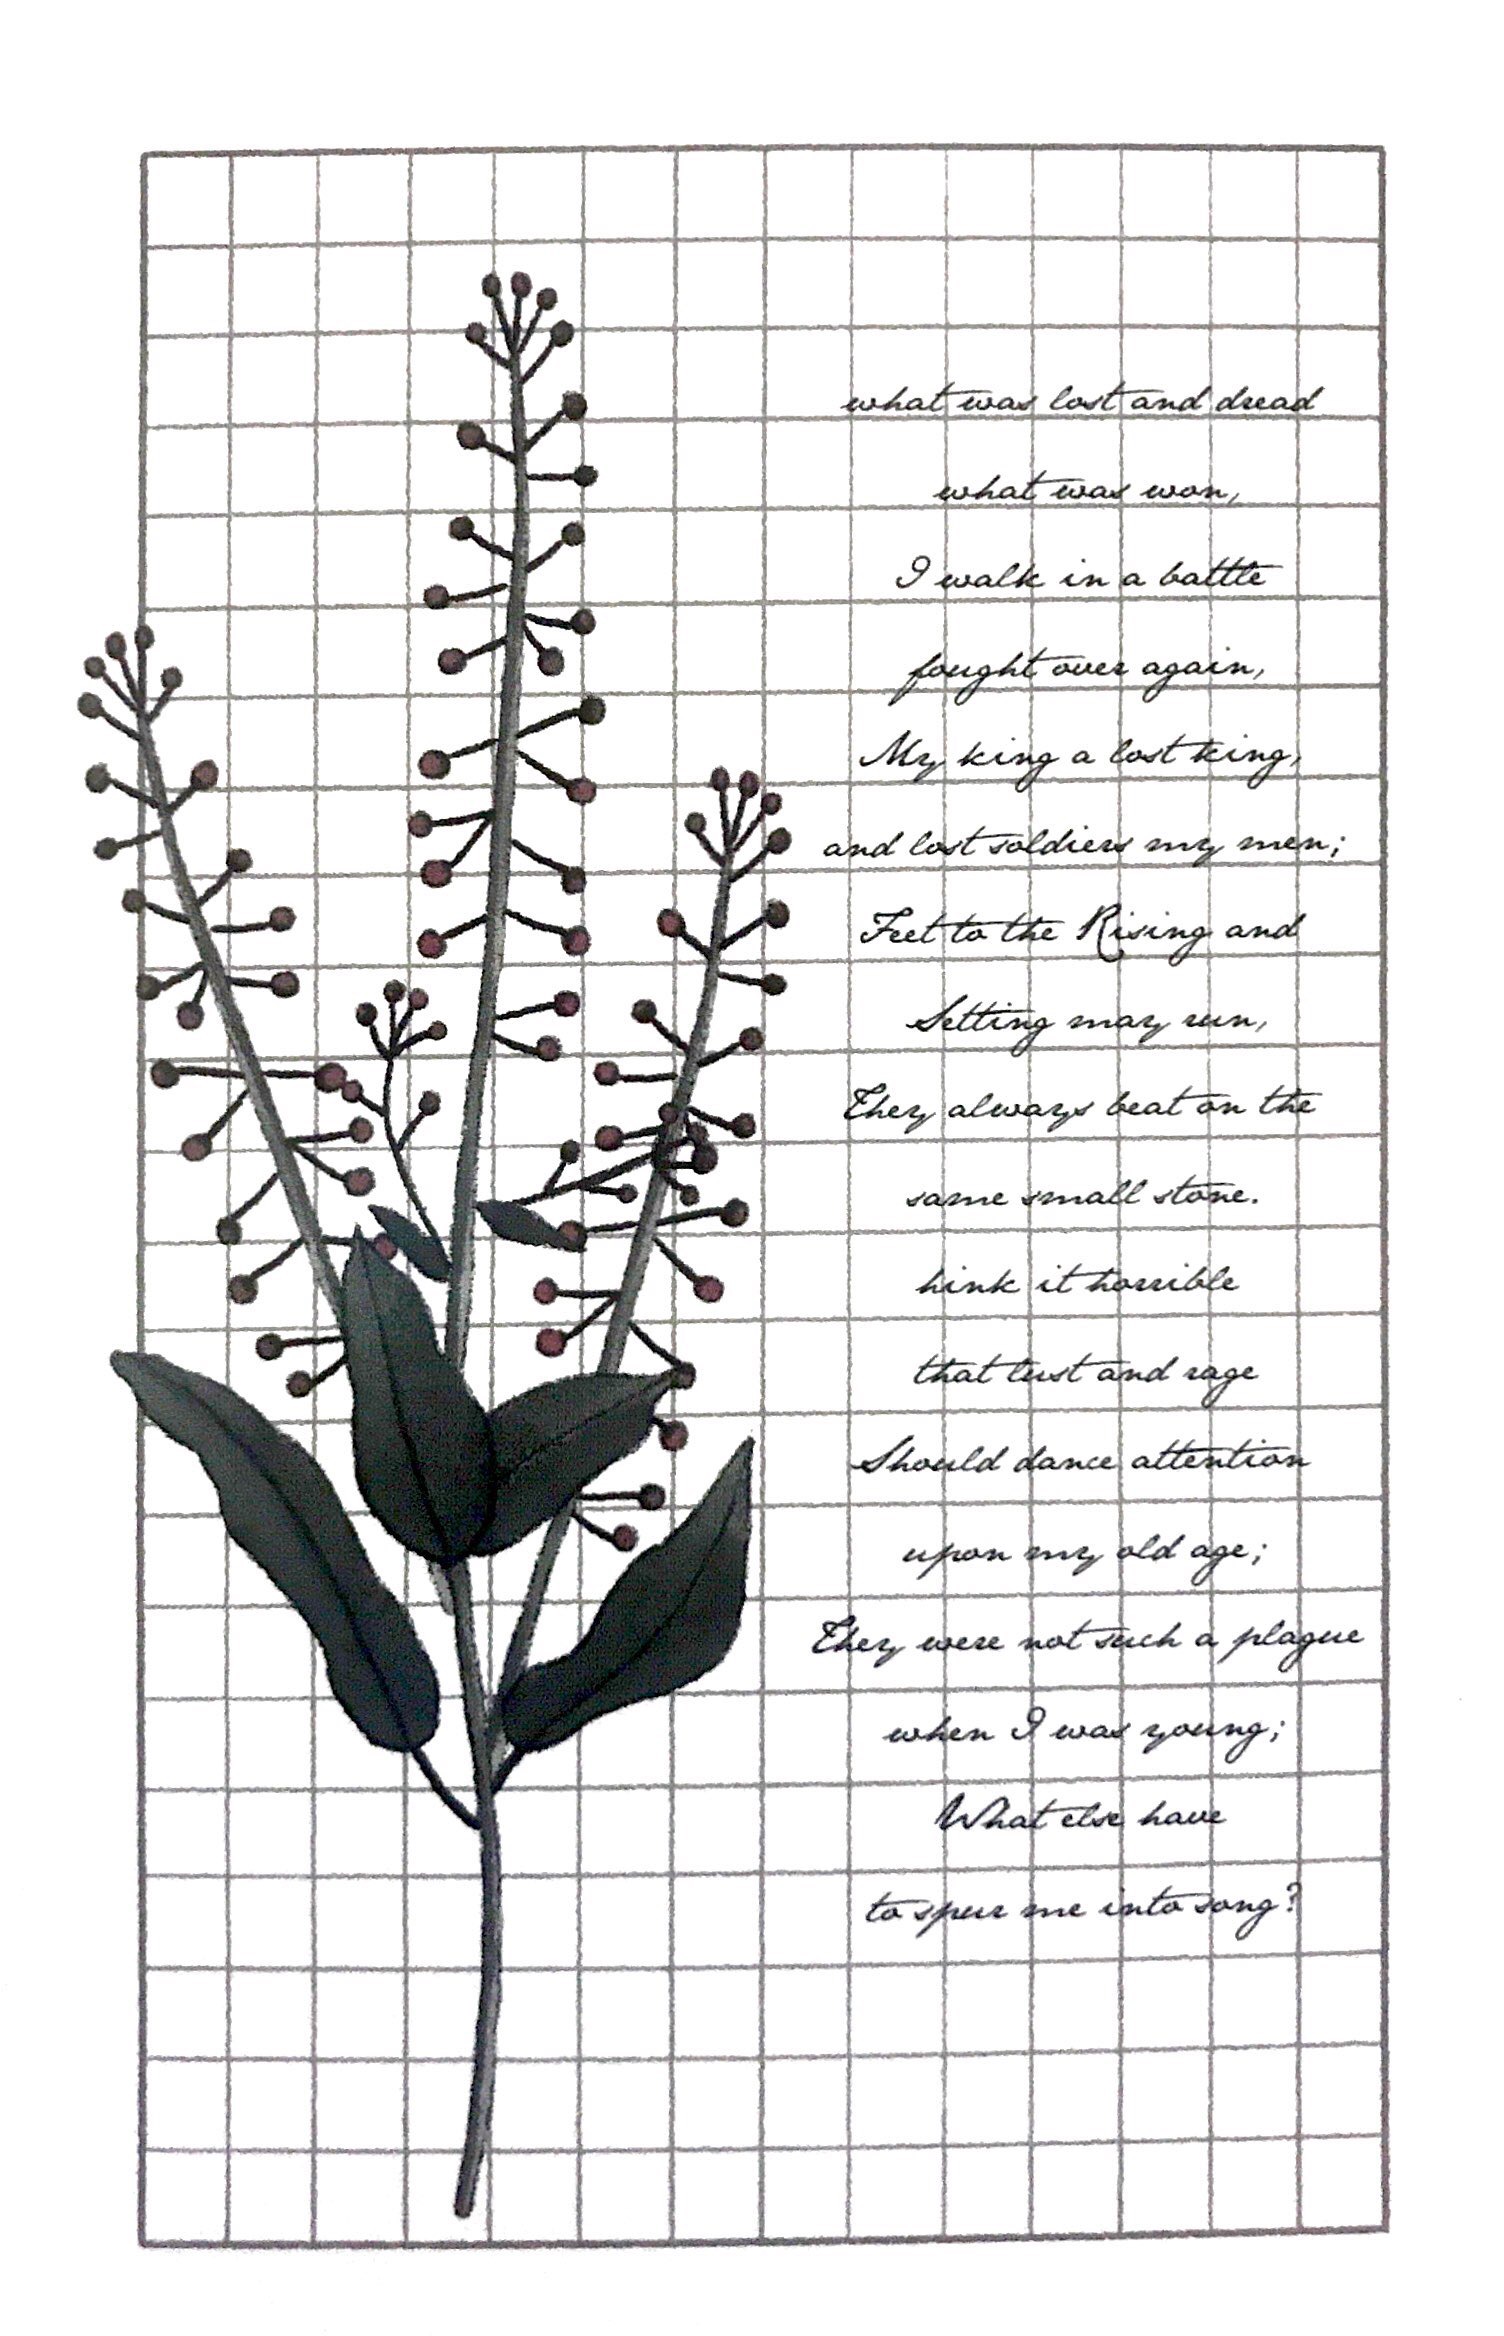 what was lost and dread
what was won,
I walk in a battle
fought over again,
My king a lost king,
and lost soldiers my men;
Feet to the Rising and
Setting may run,
They always beat on the
same small stone.
hink it horrible
that lust and rage
Should dance attention
upon my old age;
They were not such a plague
when I was young;
What else have
to spur me into song?